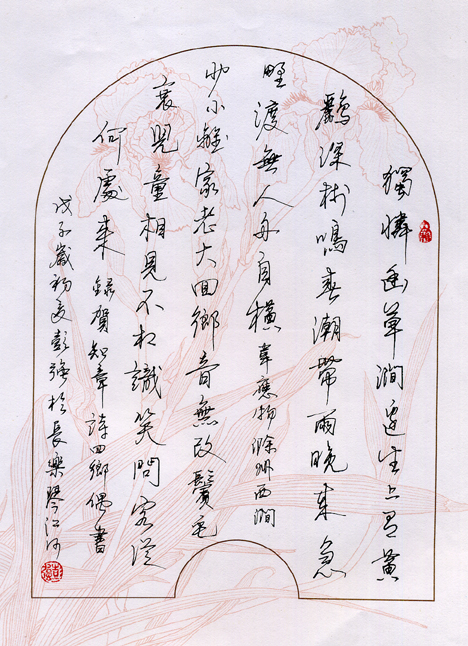 獨憐幽草澗邊生上有黃
鸝深樹鳴春潮帶雨晚來急
野渡無人舟自橫 韋應物滁州西澗
少小離家老大回鄉音無改鬢毛
衰兒童相見不相識笑問客從
何處來 錄賀知章詩回鄉偶書
戊子歲初夏彭強於長樂琴江